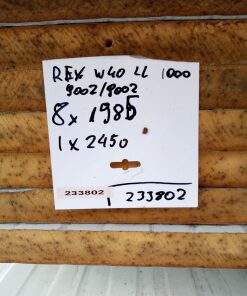 REX W40 LL 1000
9002/9002
8x 1985
1x2450
233802
233802